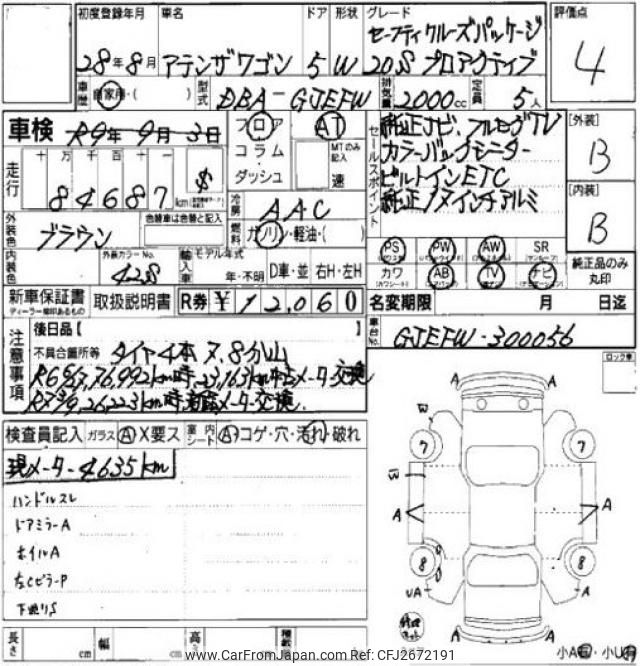 初度登録年月 車名 ドア 形状 グレード 評価点
セーフティクルーズパッケージ
28年8月 アテンザワゴン 5 W 20S プロアクティブ 4
車歴 自家用・( ) 型式 DBA-GJEFW 排気量 2000cc 定員 5人
車検 R9年9月3日 フロア AT セールスポイント 純正ナビ・フルセグTV [外装]
コラム MTのみ記入 カラーバックモニター B
走行 十万千百十一 84687km $ ダッシュ 速 ビルトインETC
冷房 AAC 純正17インチアルミ [内装]
外装色 ブラウン 色替車は色替と記入 燃料 ガソリン・軽油・( ) B
PS PW AW SR
内装色 外装カラーNo. 42S 輸入車 モデル年式 年・不明 D車・並 右H・左H カワ AB TV ナビ 純正品のみ丸印
新車保証書 取扱説明書 R券 ¥12,060 名変期限 月 日迄
ディーラー捺印あるもの
注意事項 後日品【 車台No. GJEFW-300056
不具合箇所等 タイヤ4本7.8分山
76,992km時、23,163km中古メーター交換
26,223km時メーター交換
ロック車
検査員記入 ガラス A X要ス 室内シート A コゲ・穴・汚れ・破れ
現メーター 4635km
ハンドルスレ
ドアミラーA
ホイルA
左CピラーP
下廻りS
A A
W
7 7
W
A A
8 8
UA A
長さ cm 幅 cm 高さ 積載
小A・小U
www.CarFromJapan.com Ref: CFJ2672191